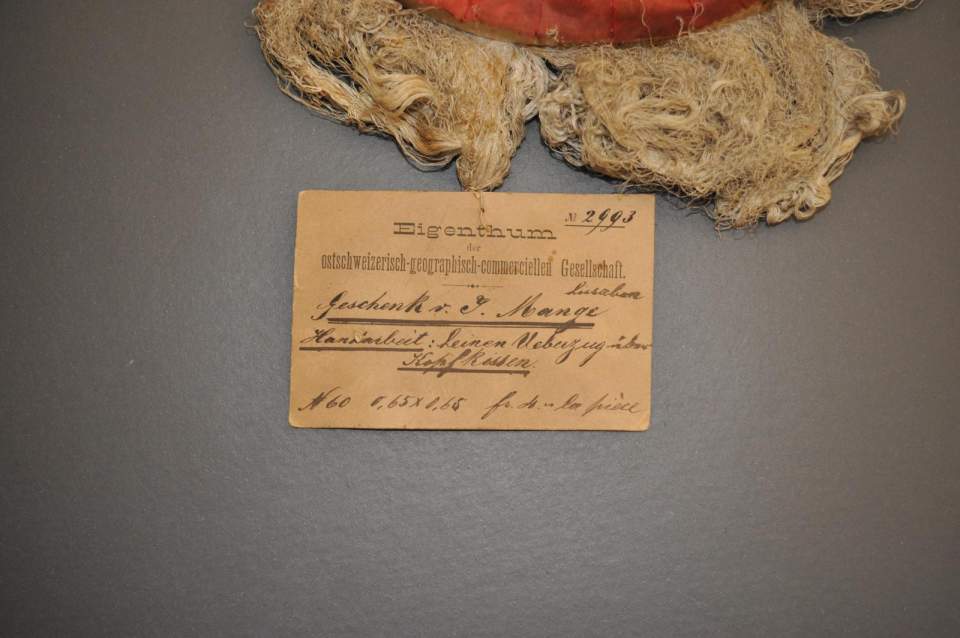 № 2993
Eigenthum
der
ostschweizerisch-geographisch-commerciellen Gesellschaft.
Geschenk v. J. Mange
Handarbeit: Leinen Ueberzug über
Kopfkissen.
N 60 0,65 x 0,65 fr. 4.- la pièce